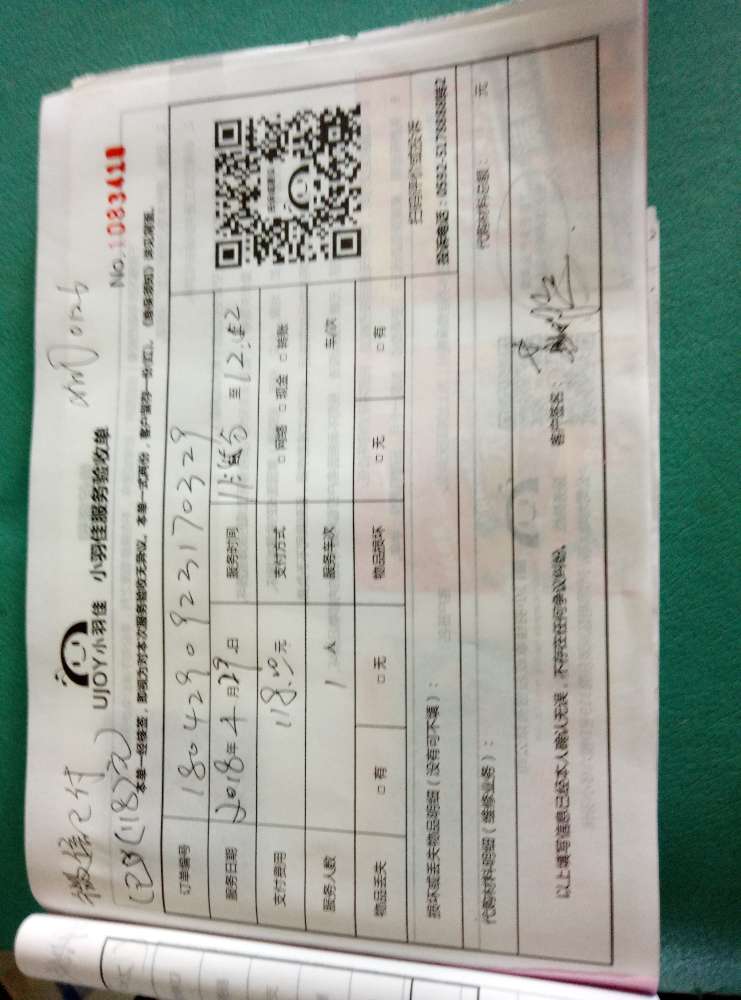 微信已付
(已收(118)元)
UJOY小羽佳 小羽佳服务验收单
No.1083418
本单一经接签,即视为对本次服务验收无异议。本单一式两份,客户留存一份
订单编号 1804290923170329
服务日期 2018年4月29日 服务时间 至12:42
支付费用 118.00元 支付方式 □网络 □现金 □转账
服务人数 1人 服务车次 车/次
物品丢失 □有 □无 物品损坏 □无 □有
扫描评价或投诉
损坏或丢失物品明细(没有可不填):
代购材料明细(维修业务): 代购材料总额: 元
以上填写信息已经本人确认无误,不存在任何争议纠纷。 客户签名: